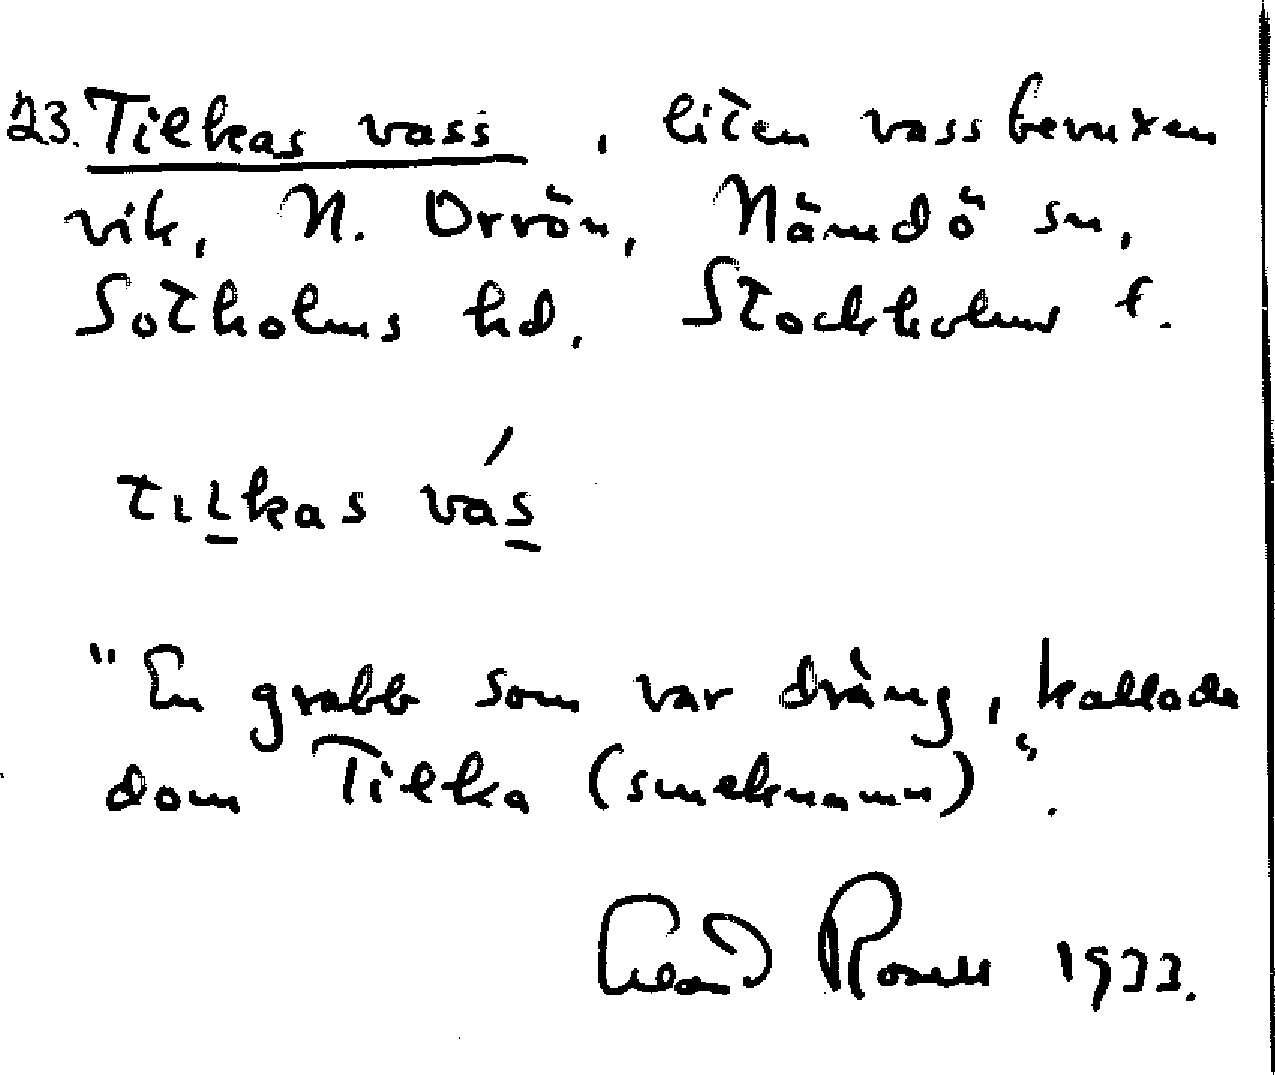 23. Tilkas vass, liten vassbevuxen
vik, N. Orrön, Nämdö sn,
Sotholms hd, Stockholms l.
tiḻkas vás̱
"En grabb som var dräng, kallade
dom Tilka (smeknamn)".
1933.